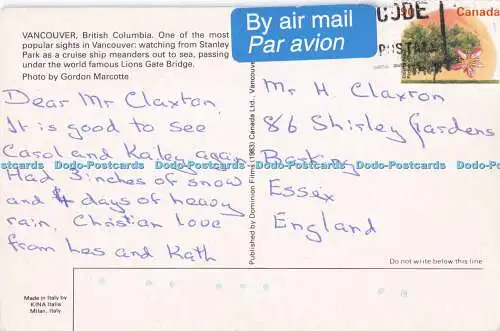 VANCOUVER, British Columbia. One of the most
popular sights in Vancouver: watching from Stanley
Park as a cruise ship meanders out to sea, passing
under the world famous Lions Gate Bridge.
Photo by Gordon Marcotte
Dear Mr Claxton,
It is good to see
Carol and Kailey again
Had 3 inches of snow
and 4 days of heavy
rain. Christian Love
from Les and Kath
Made in Italy by
KINA Italia
Milan, Italy
Published by Dominion Films (1983) Canada Ltd., Vancouver
By air mail
Par avion
CODE
POSTAL
Canada
Mr H. Claxton
86 Shirley Gardens
Barking
Essex
England
Do not write below this line
Dodo-Postcards Dodo-Postcards Dodo-Postcards Dodo-Postcards Dodo-Postcards